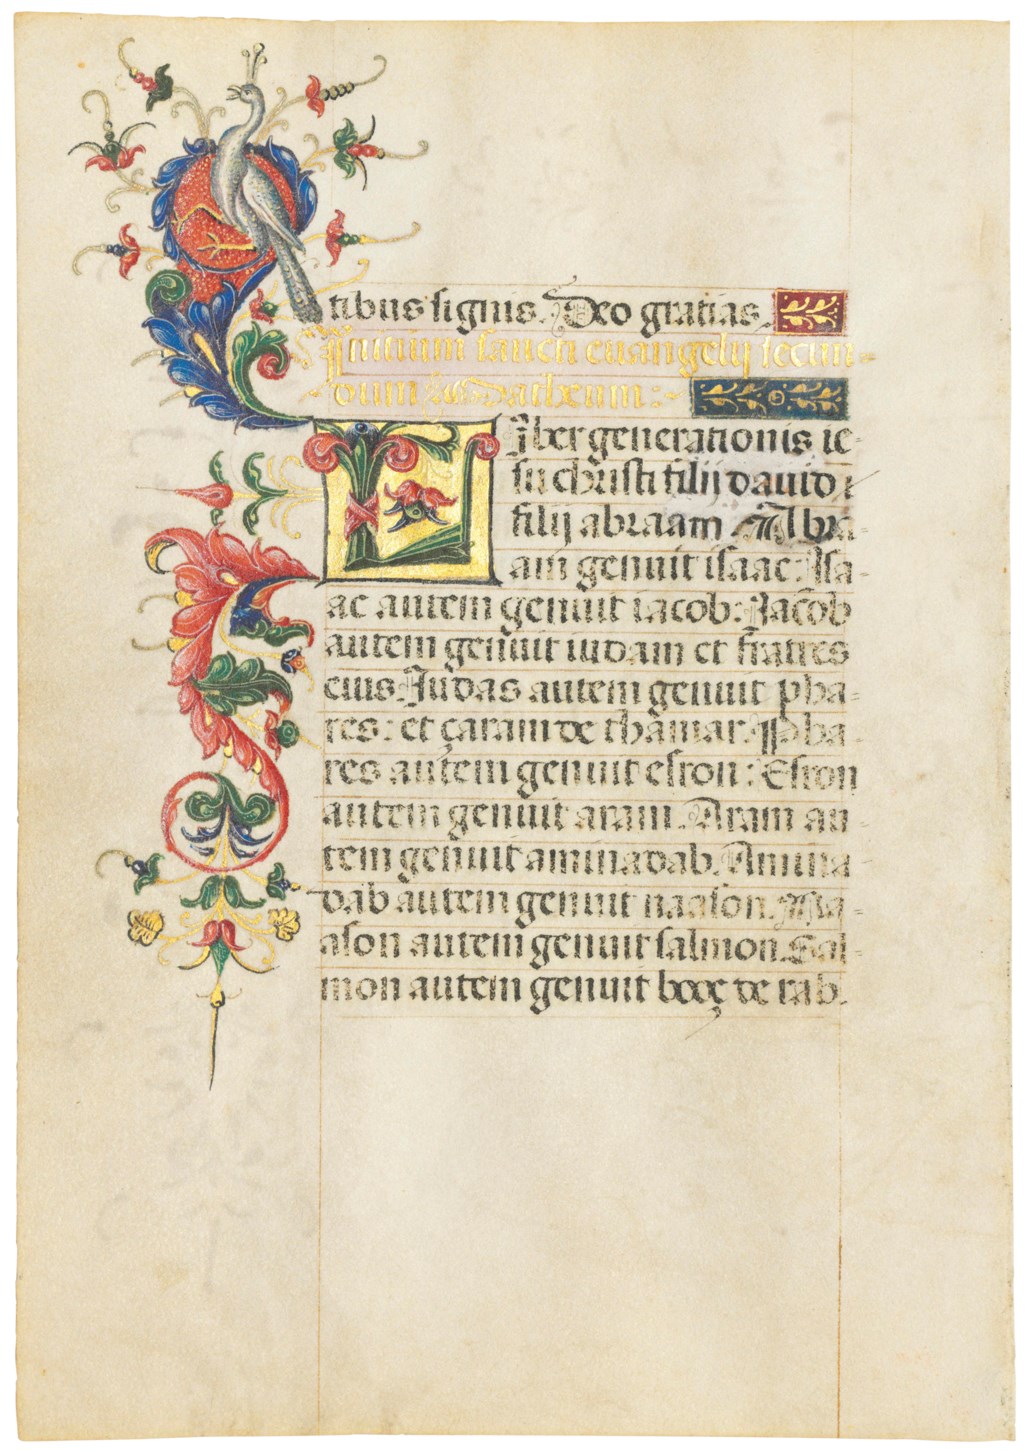 tibus signis. Deo gratias.
Initium sancti euangelij secun-
dum Matheum:
Liber generationis ie-
su christi filij dauid
filij abraam. Abra-
am genuit isaac. Isa-
ac autem genuit iacob: Iacob
autem genuit iudam et fratres
eius. Iudas autem genuit pha-
res: et çaram de thamar. Pha-
res autem genuit esron: Esron
autem genuit aram. Aram au-
tem genuit aminadab. Amina-
dab autem genuit naason. Na-
ason autem genuit salmon. Sal-
mon autem genuit booç de rab.